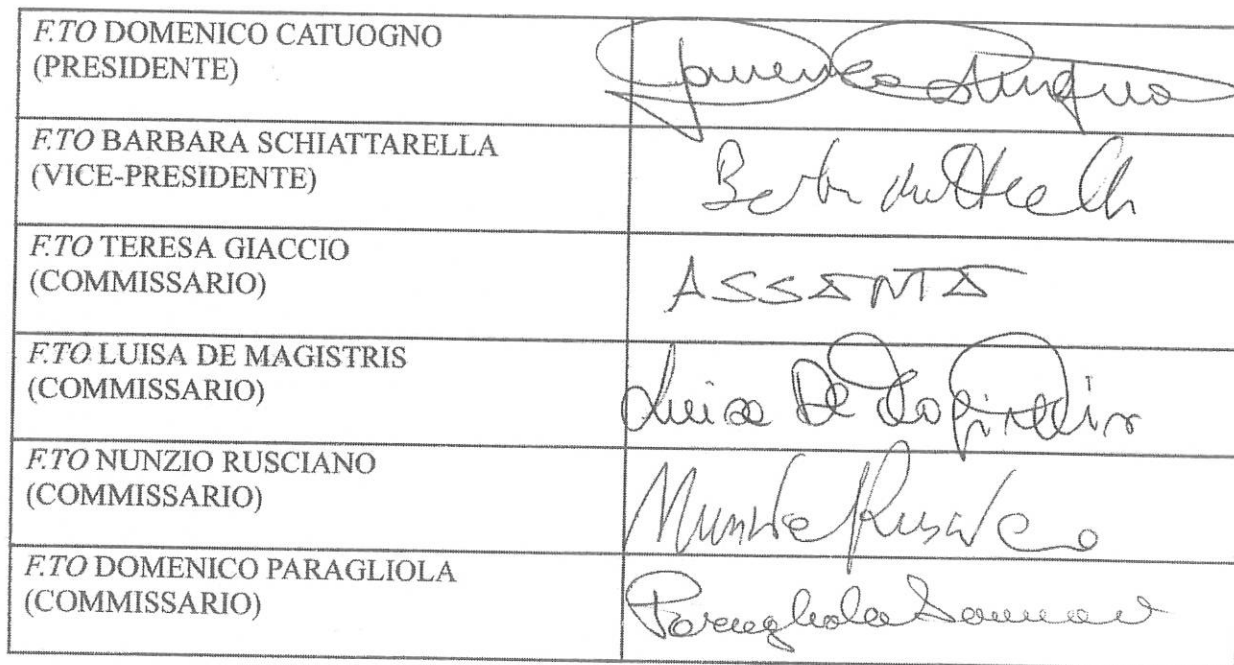 F.TO DOMENICO CATUOGNO
(PRESIDENTE)
F.TO BARBARA SCHIATTARELLA
(VICE-PRESIDENTE)
F.TO TERESA GIACCIO
(COMMISSARIO)
ASSENTA
F.TO LUISA DE MAGISTRIS
(COMMISSARIO)
Luisa De Magistris
F.TO NUNZIO RUSCIANO
(COMMISSARIO)
Nunzio Rusciano
F.TO DOMENICO PARAGLIOLA
(COMMISSARIO)
Paragliola Domenico